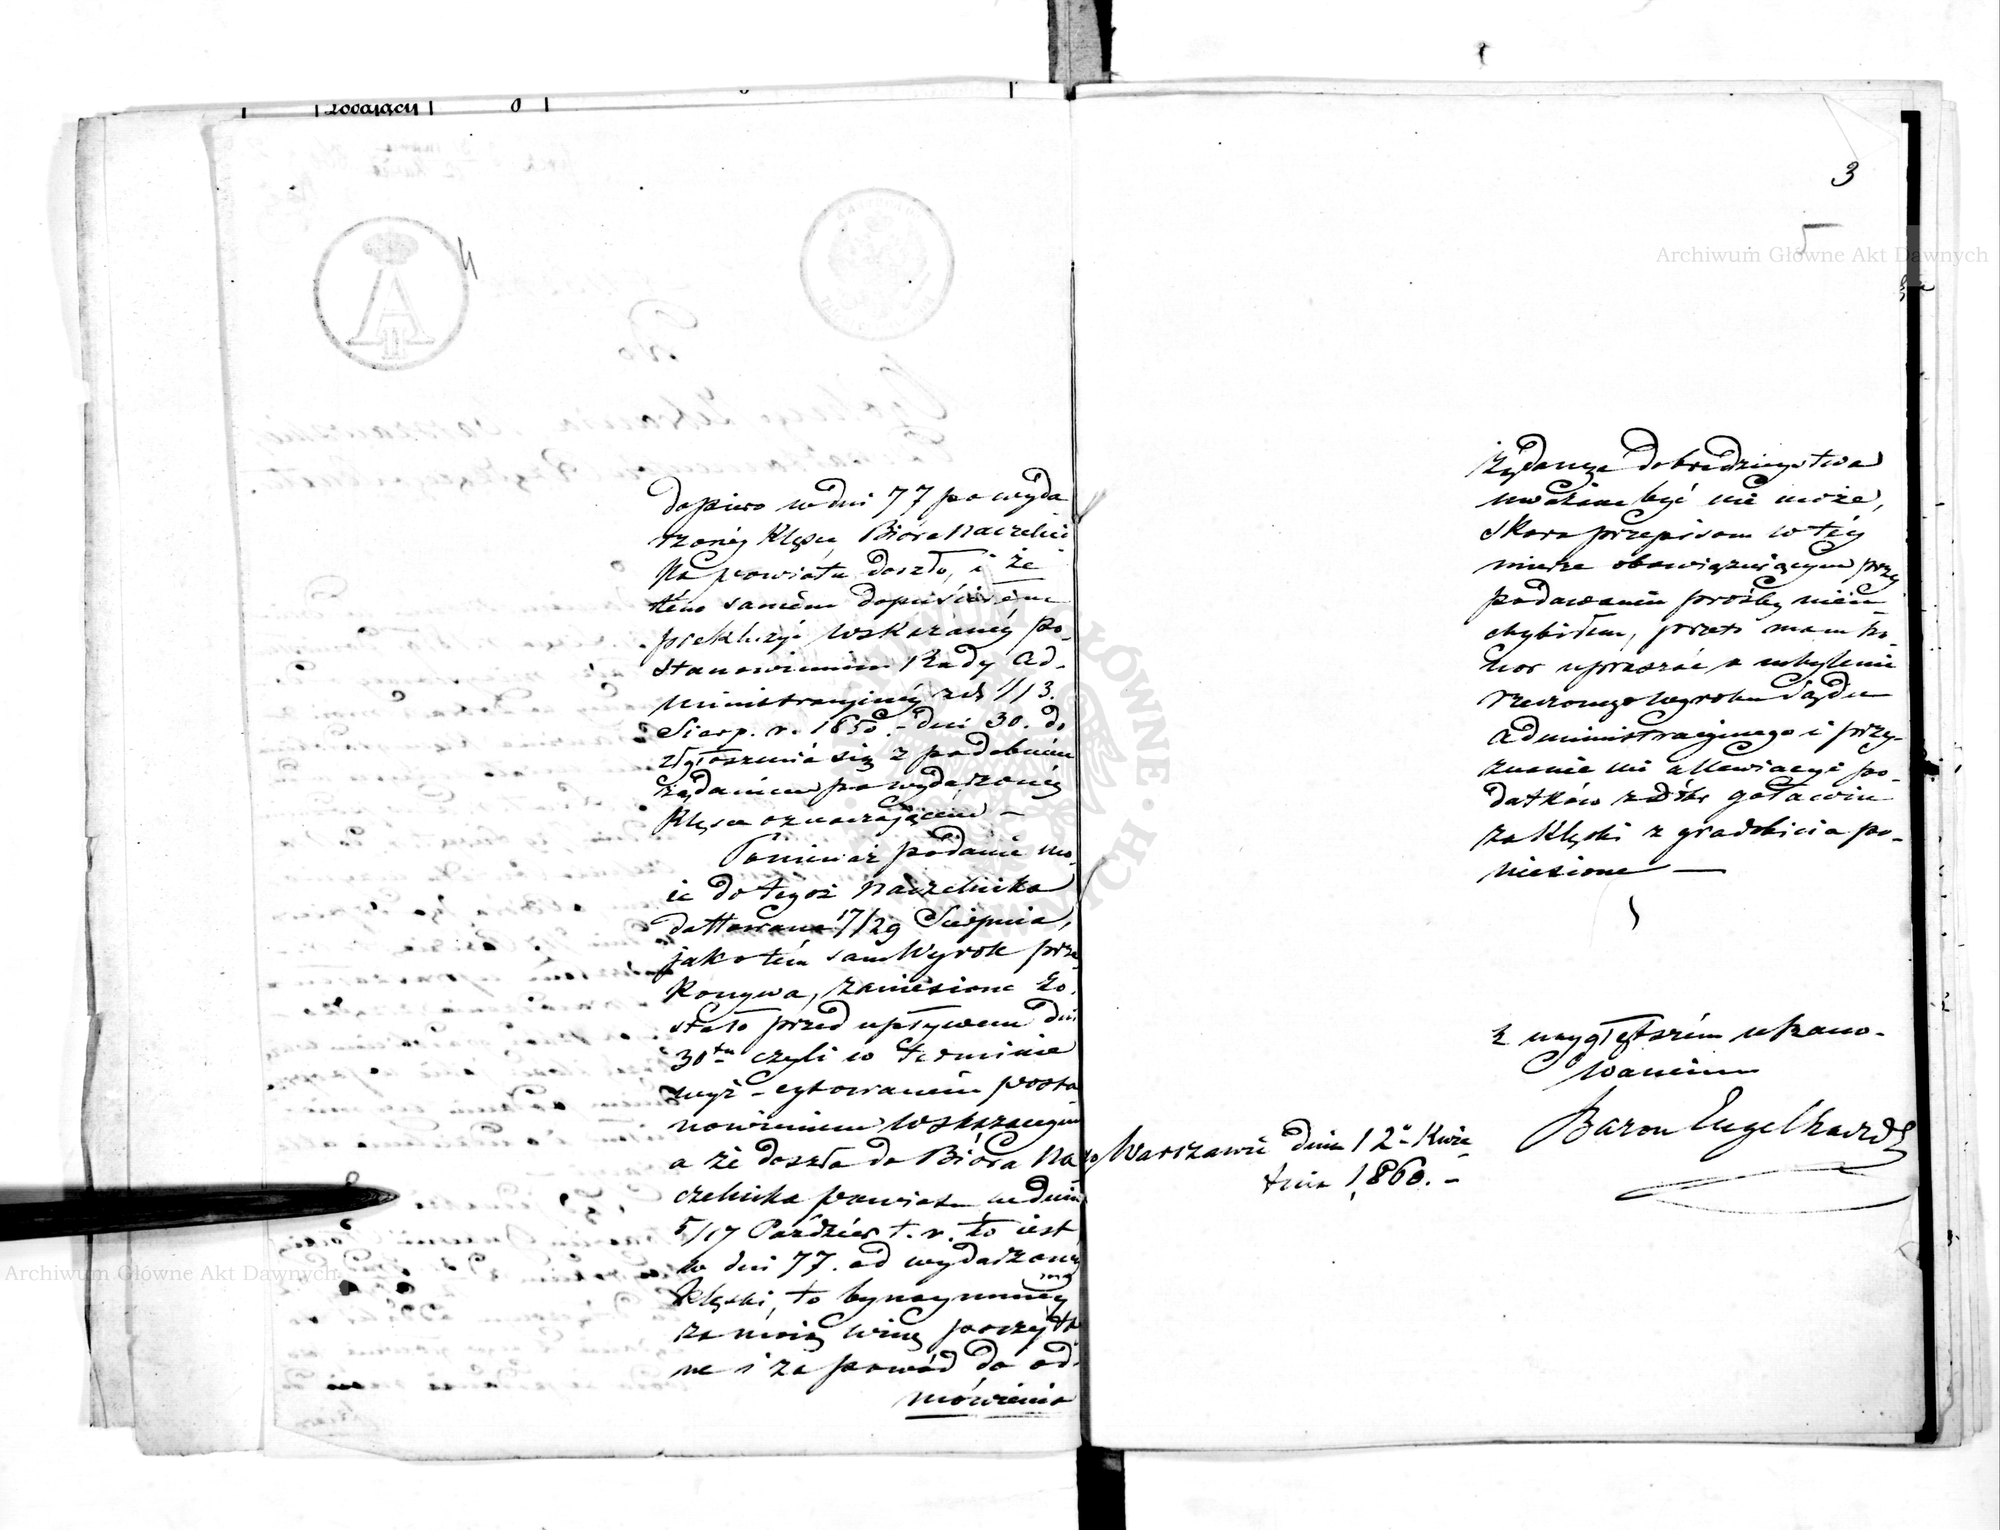 4
dopiero w dni 77 po wyda
rzonéj klęsce Bióra Naczelni
ka powiatu doszło, i że
tém samém dopuściłem
prekluzyi wskazanéj po-
stanowieniem Rady Ad-
ministracyjnéj zdn 1/13.
Sierp. r. 1850.- dni 30. do
zgłoszenia się z podobném
żądaniem po wydarzonéj
klęsce oznaczającém –
Ponieważ podanie mo-
ie do tegoż Naczelnika
dattowane 17/29 Sierpnia,
jak o tém sam Wyrok prze
konywa, zaniesione zo-
stało przed upływem dni
30tu czyli w terminie
wyż-cytowaném posta-
nowieniem wskazanym
a że doszło do Bióra Na
czelnika powiatu w dniu
5/17 Paździer t. r. to iest
w dni 77. od wydarzonéj
klęski, to bynaymniéy
za moię winę poczyta
ne i za powód do od-
mówienia
3
5
żądanego dobrodzieystwa
uważane być nie może,
skoro przepisom w téj
mierze obowiązującym przy
podawaniu prośby nieu-
chybiłem, przeto mam ho-
nor upraszać o uchylenie
rzeczonego Wyroku Sądu
Administracyjnego i przy-
znanie mi allewiacyi po-
datków z dóbr Goławin
za klęski z gradobicia po-
niesione —
z naygłębszém uszano-
waniem
Baron Engelhardt
w Warszawie dnia 12o Kwie
tnia 1860. –
Archiwum Główne Akt Dawnych
Archiwum Główne Akt Dawnych